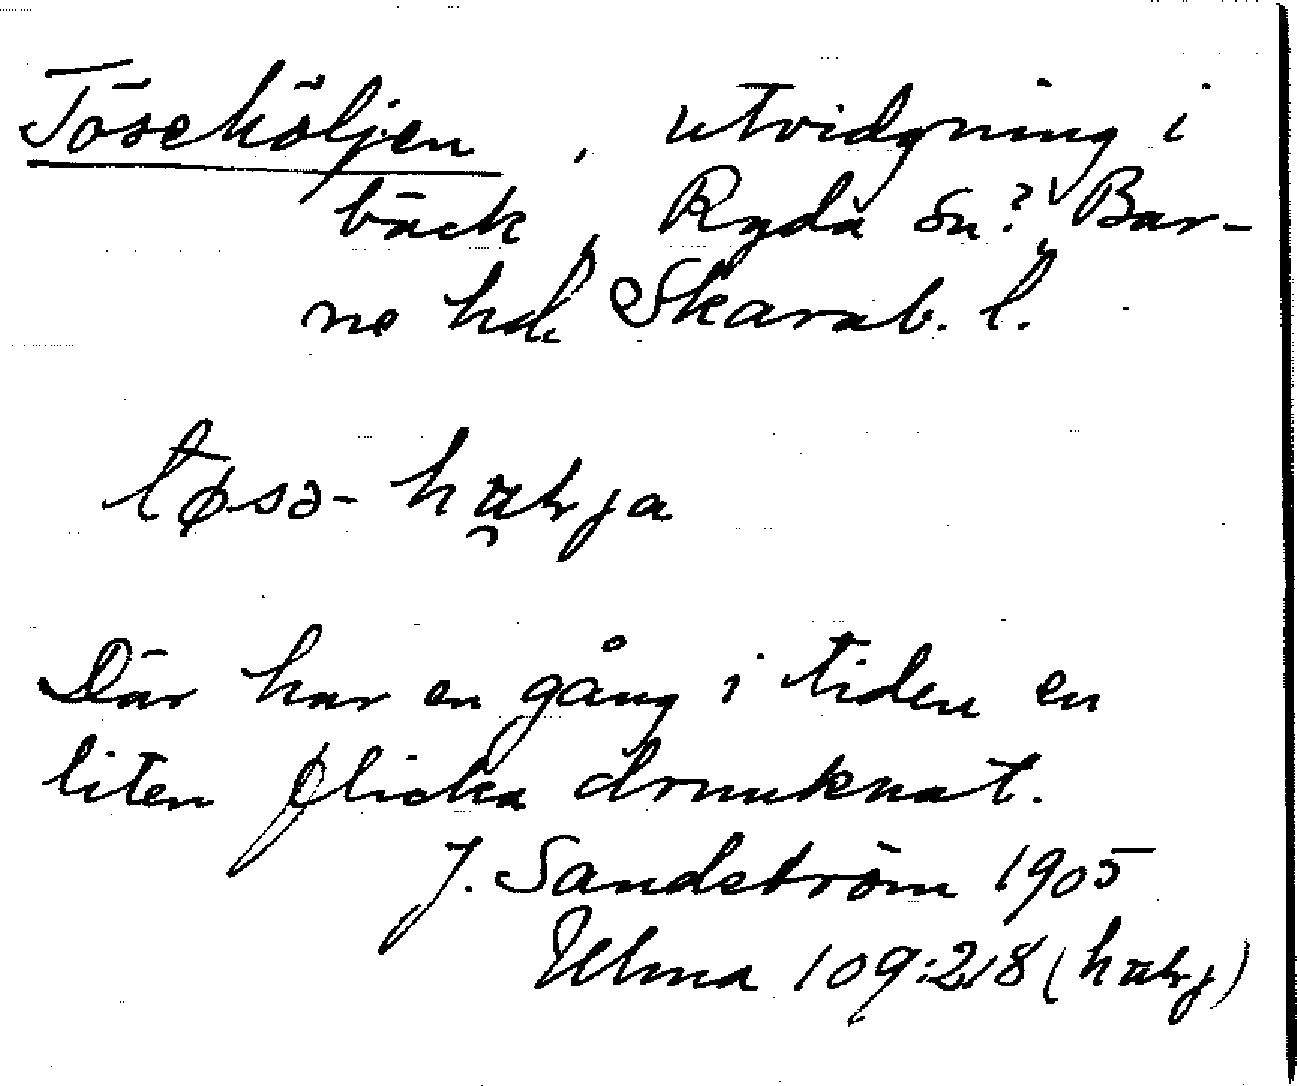 Töseköljen, utvidgning i
bäck, Ryda sn? Bar-
ne hd Skarab. l.
tøsə-
Där har en gång i tiden en
liten flicka drunknat.
J. Sandström 1905
Ulma 109:218